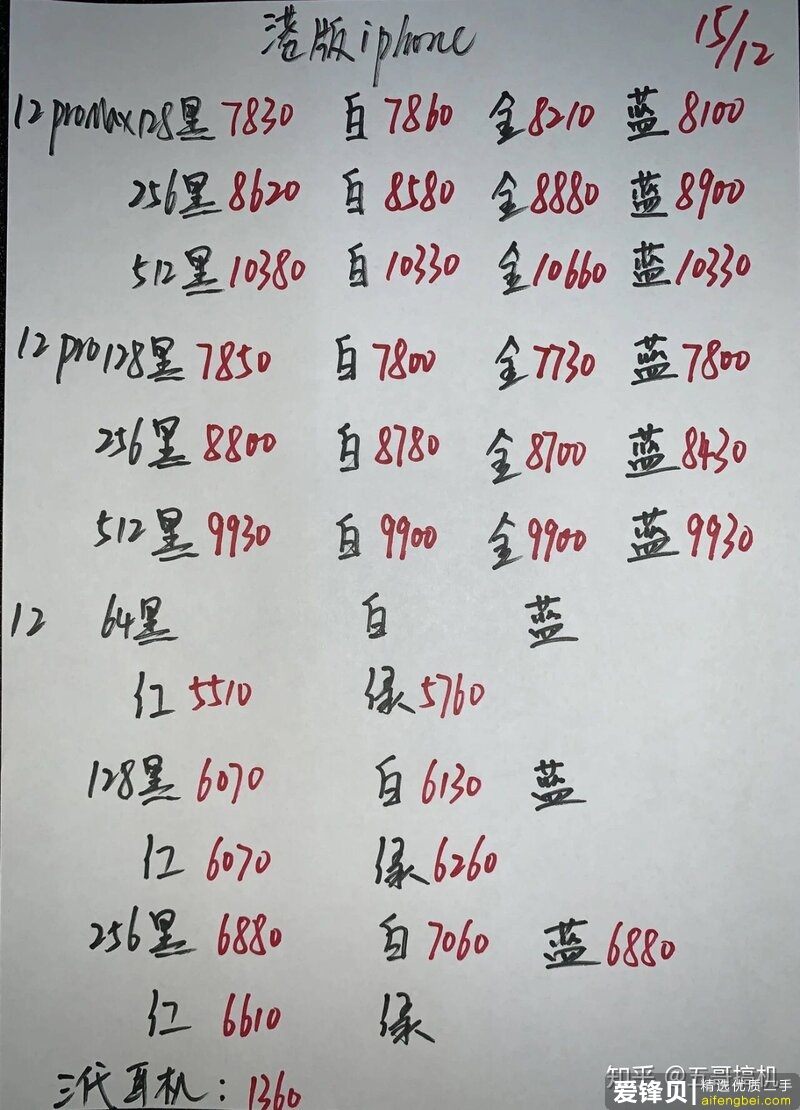 港版iphone 15/12
12proMax128黑7830 白7860 金8210 蓝8100
256黑8620 白8580 金8880 蓝8900
512黑10380 白10330 金10660 蓝10330
12pro128黑7850 白7800 金7730 蓝7800
256黑8800 白8780 金8700 蓝8430
512黑9930 白9900 金9900 蓝9930
12 64黑 白 蓝
红5510 绿5760
128黑6070 白6130 蓝
红6070 绿6260
256黑6880 白7060 蓝6880
红6610 绿
三代耳机：1360
知乎 @五哥搞机
爱锋贝 精选优质二手
aifengbei.com